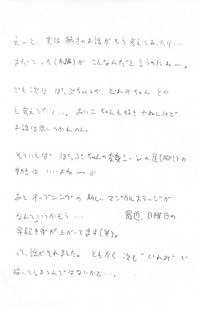 えーと、実は続きのお話がもう考えてあったり…
まだこっち(前編)がこんなんだと言うのにねー。
でも次は ぽっぷちゃんや、どれみちゃん とか
も考えてたり…。あいこちゃんも好き やねんけど
お話は思いつかんねん。
そういえば ぽっぷちゃんの変身シーンの足
は いいよねー
あと オープニングの 新しい マジカルステージが
なんというかもう… 最近、日曜日の
早起き率が上がってます(笑)。
って、話がそれました。ともかく 次も"どれみ"で
描いてしまうんではないかと…。